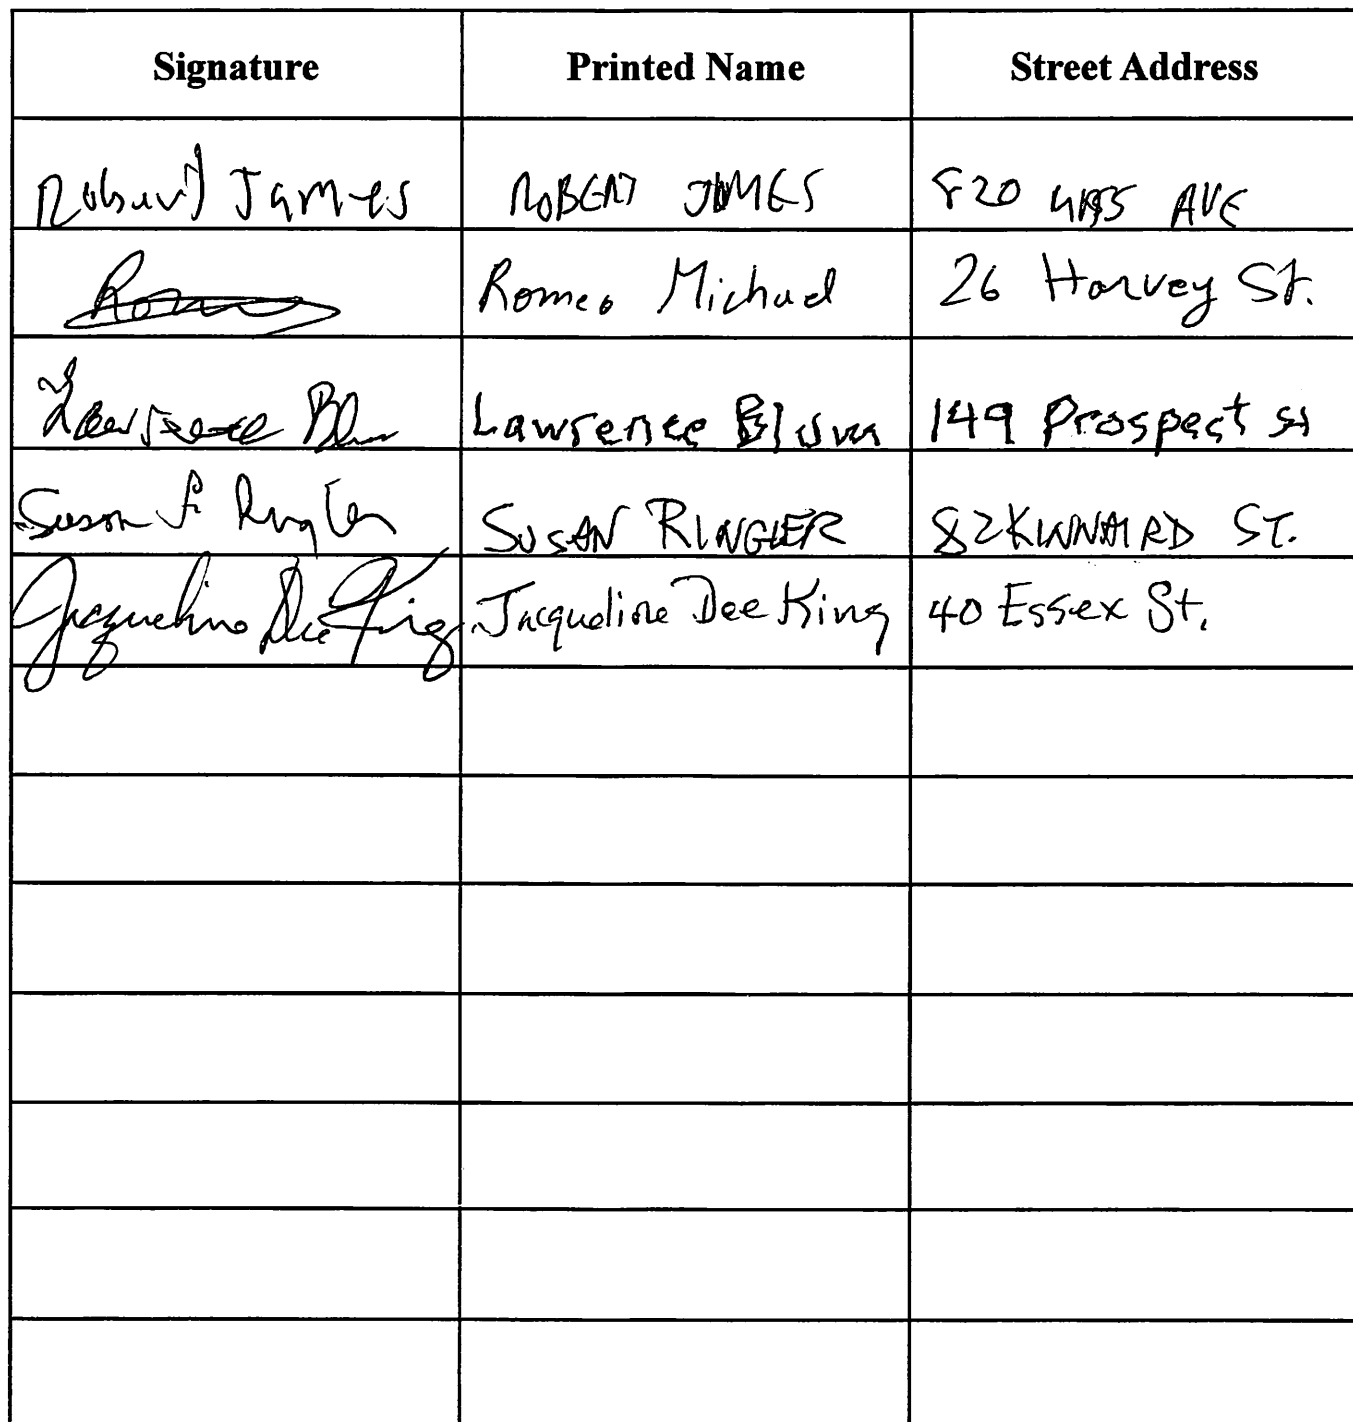 Signature Printed Name Street Address
Robert James ROBERT JAMES 820 MASS AVE
Romeo Michael 26 Harvey St.
Lawrence Blum Lawrence Blum 149 Prospect St
Susan Ringler SUSAN RINGLER 82 KINNAIRD ST.
Jacqueline Dee King Jacqueline Dee King 40 Essex St.